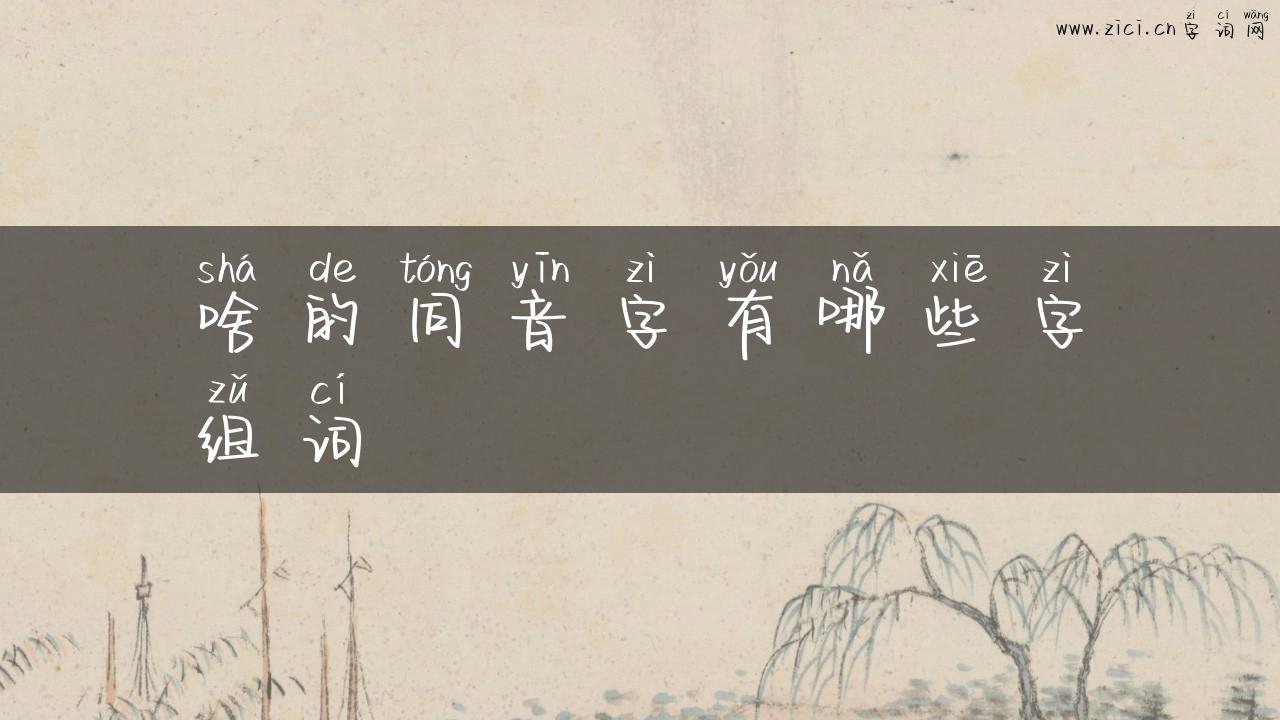 zì cí wǎng
www.zici.cn 字词网
shá de tóng yīn zì yǒu nǎ xiē zì
啥的同音字有哪些字
zǔ cí
组词